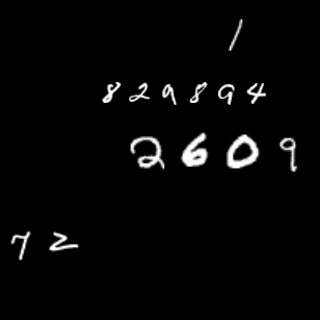 1
829894
2609
72